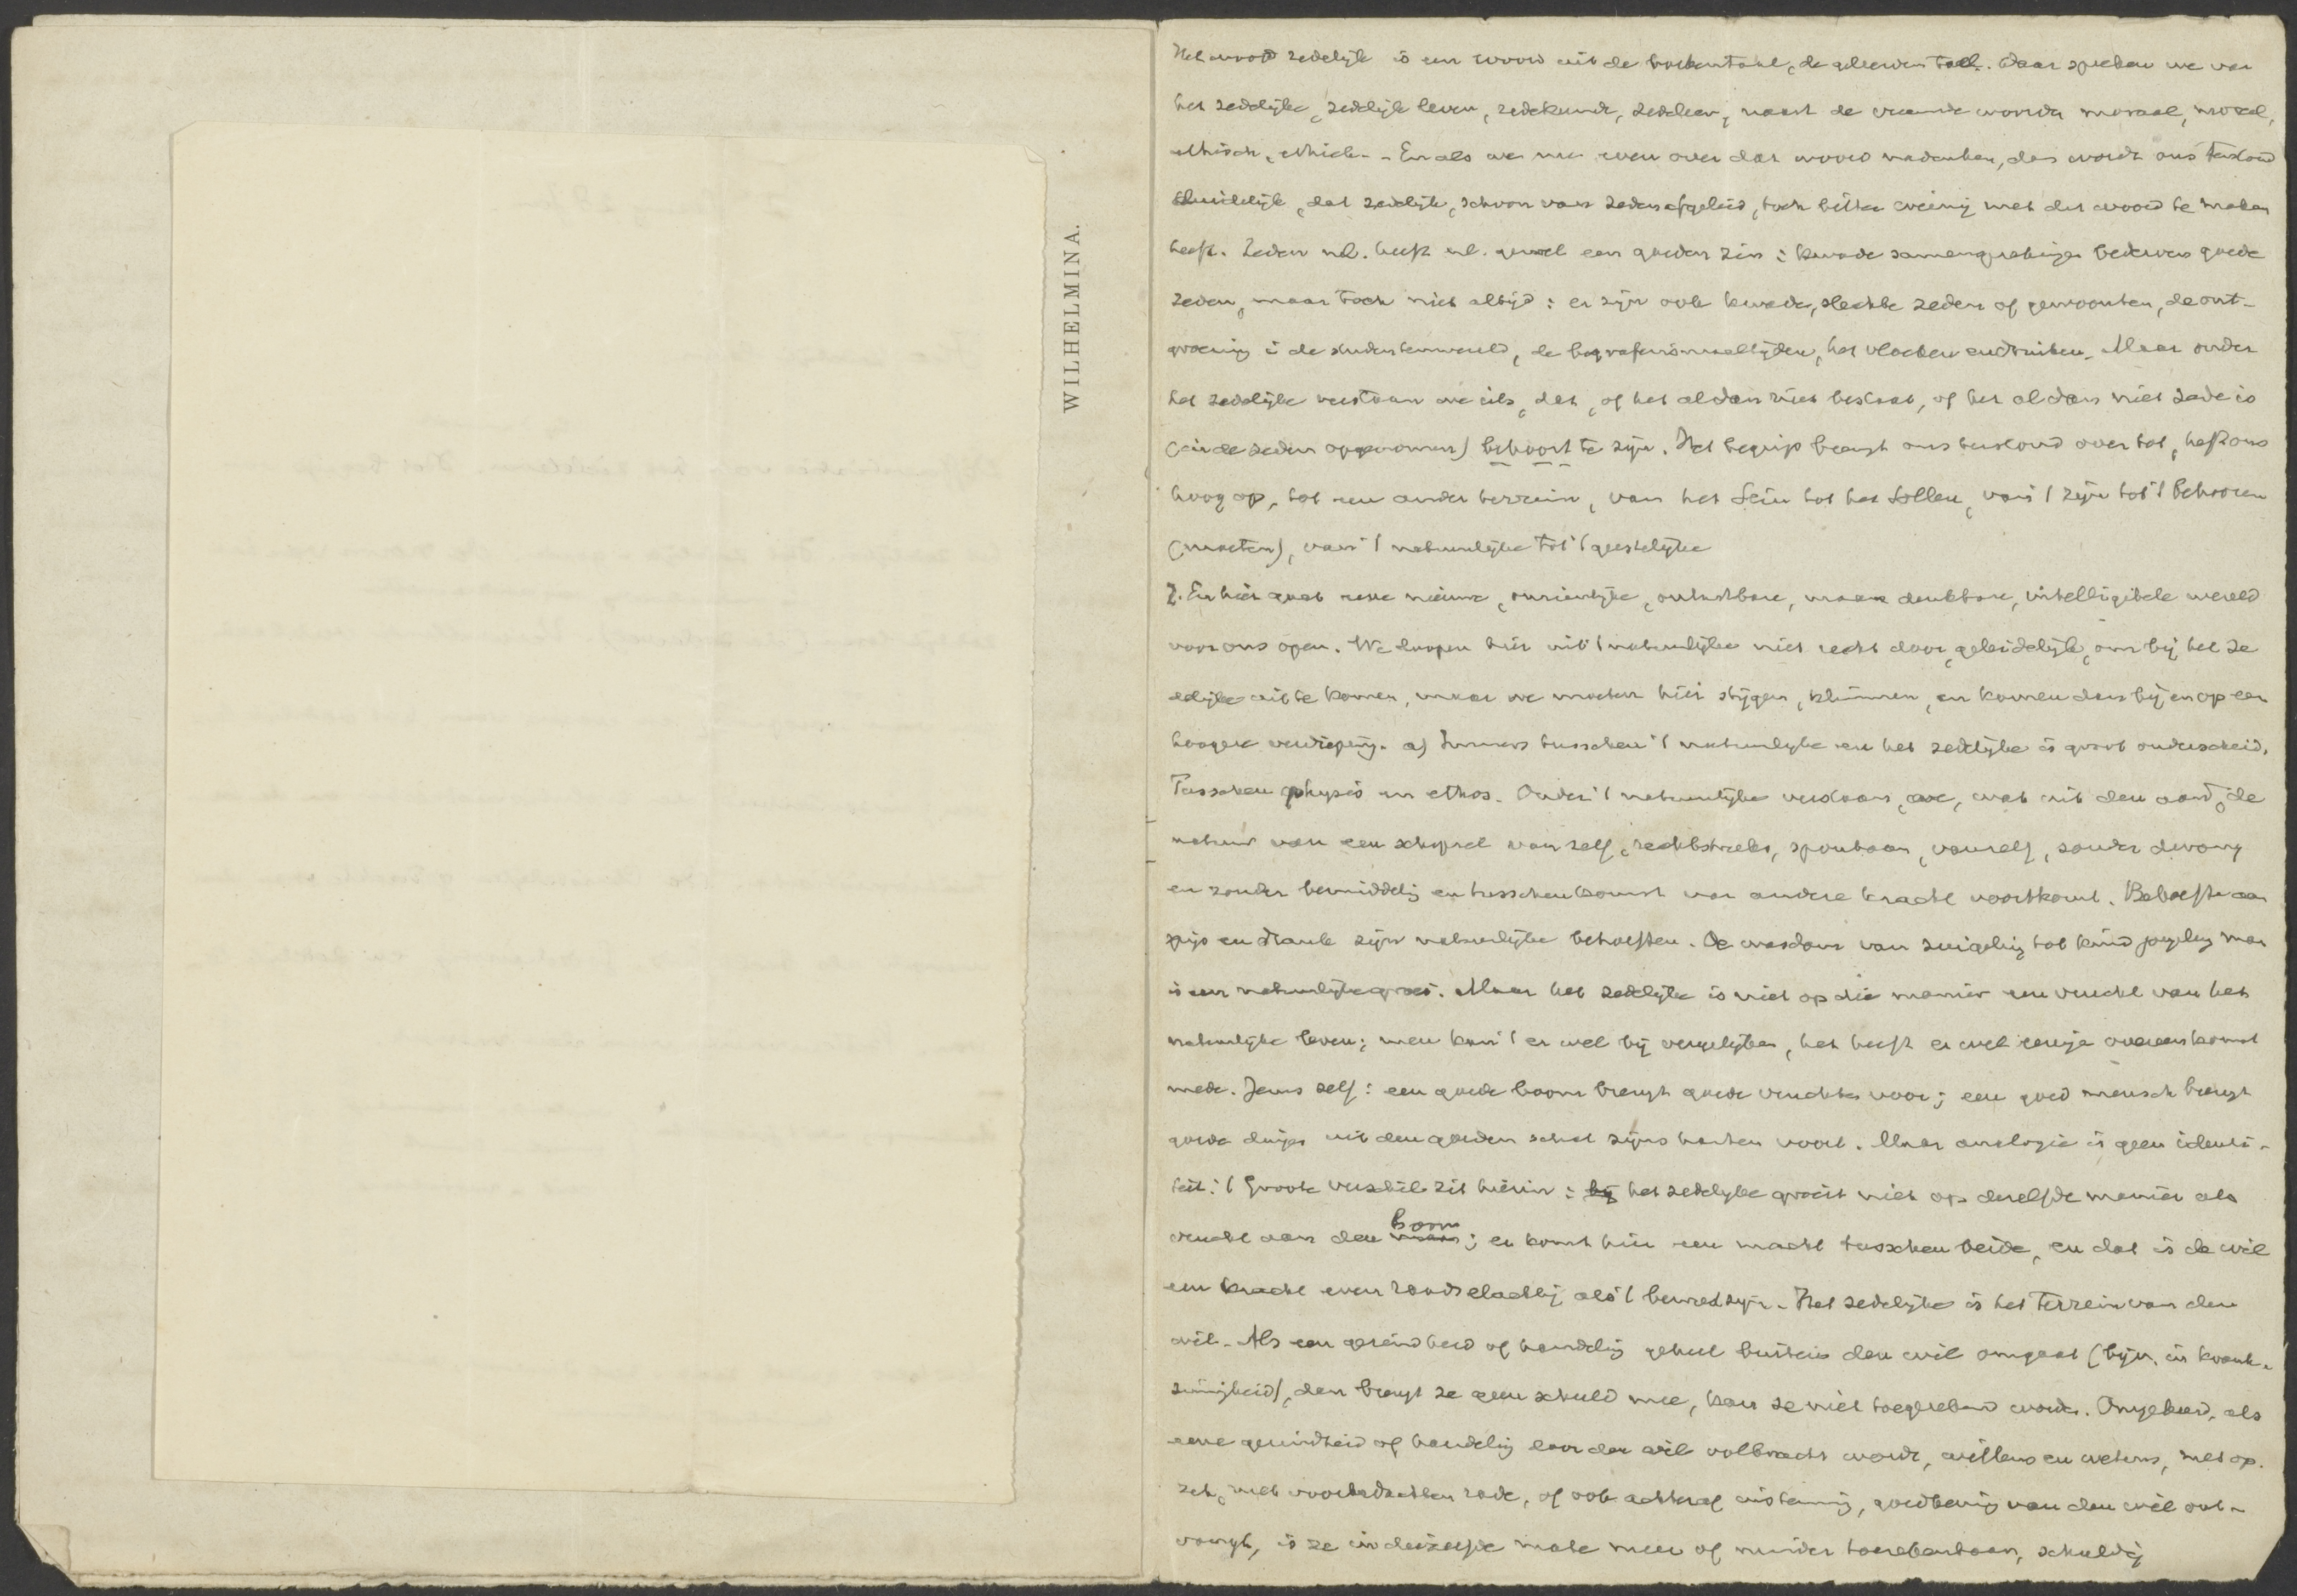 WILHELMINA.
Het woord zedelijk is een woord uit de boekentaal, de geleerden taal. Daar spreken we van
het zedelijke, zedelijk leven, zedekunde, zedeleer, naast de vreemde woorden moraal, moreel,
ethisch, ethiek. - En als we nu even over dat woord nadenken, dan wordt ons terstond
duidelijk, dat zedelijk, schoon van zeden afgeleid, toch bitter weinig met dit woord te maken
heeft. Zeden nl. heeft nl. wel een goeden zin: kwade samensprekingen bederven goede
zeden, maar toch niet altijd: er zijn ook kwade, slechte zeden of gewoonten, de ont-
groening i de studentenwereld, de begrafenismaaltijden, het vloeken en drinken. Maar onder
het zedelijke verstaan we iets, dat, of het al dan niet bestaat, of het al dan niet zede is
(in de zeden opgenomen) behoort te zijn. Het begrip brengt ons terstond over tot, heft ons
hoog op, tot een ander terrein, van het Sein tot het Sollen, van 't zijn tot 't behooren
(moeten), van 't natuurlijke tot 't geestelijke
2. En hier gaat eene nieuwe, onzienlijke, ontastbare, maar denkbare, intelligibele wereld
voor ons open. We loopen hier uit 't natuurlijke niet recht door, geleidelijk, om bij het ze
delijke uit te komen, maar we moeten hier stijgen, klimmen, en komen dan bij en op een
hoogere verdieping. a) Immers tusschen 't natuurlijke en het zedelijke is groot onderscheid.
Tusschen physis en ethos. Onder 't natuurlijke verstaan we, wat uit den aard, de
natuur van een schepsel van zelf, rechtstreeks, spontaan, vanzelf, zonder dwang
en zonder bemiddeling en tusschenkomst van andere kracht voortkomt. Behoefte aan
spijs en drank zijn natuurlijke behoeften. De wasdom van zuigeling tot kind jongeling man
is een natuurlijke groei. Maar het zedelijke is niet op die manier een vrucht van het
natuurlijke leven; men kan 't er wel bij vergelijken, het heeft er wel eenige overeenkomst
mede. Jezus zelf: een goede boom brengt goede vruchten voor; een goed mensch brengt
goede dingen uit den goeden schat zijns harten voort. Maar analogie is geen identi-
teit. 't Groote verschil zit hierin: bij het zedelijke groeit niet op dezelfde manier als
vrucht aan den boom; er komt hier een macht tusschen beide, en dat is de wil
een kracht even raadselachtig als 't bewustzijn. Het zedelijke is het terrein van den
wil. Als een gezindheid of handeling geheel buiten den wil omgaat (bijv. in krank-
zinnigheid), dan brengt ze geen schuld mee, kan ze niet toegerekend worden. Omgekeerd, als
eene gezindheid of handeling door den wil volbracht wordt, willens en wetens, met op-
zet, met voorbedachten rade, of ook achteraf instemming, goedkeuring van den wil ont-
vangt, is ze in diezelfde mate meer of minder toerekenbaar, schuldig